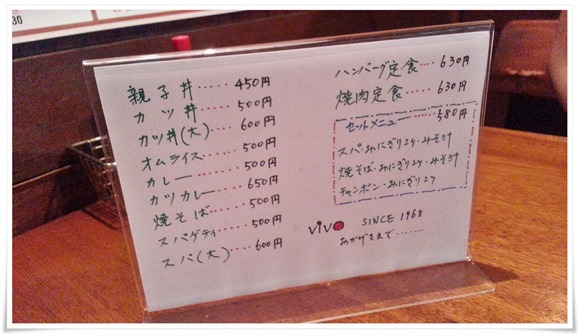 30
親子丼‥‥‥450円
カツ丼‥‥‥500円
カツ丼(大)‥‥600円
オムライス‥‥‥500円
カレー‥‥‥500円
カツカレー‥‥650円
焼そば‥‥‥500円
スパゲティ‥‥500円
スパ(大)‥‥‥600円
ハンバーグ定食‥‥630円
焼肉定食‥‥‥630円
セールメニュー‥‥‥580円
スパ・おにぎり2ケ・みそ汁
焼そば・おにぎり2ケ・みそ汁
チャンポン・おにぎり2ケ
vivo SINCE 1968
おかげさまで‥‥‥